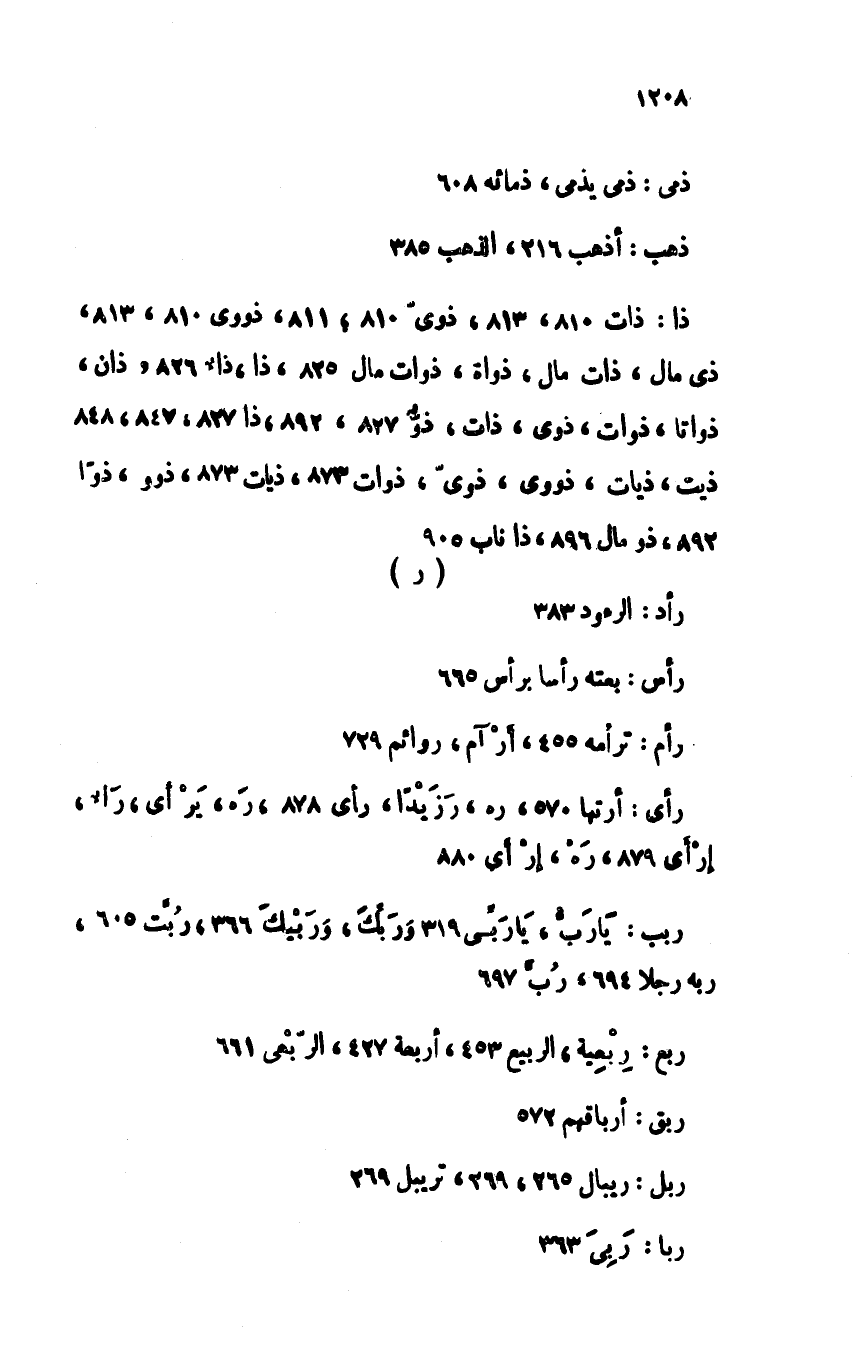 ١٢٠٨
ذمى : ذمى يذمى ، ذمائه ٦٠٨
ذهب : أذهب ٢١٦ ، الذهب ٣٨٥
ذا : ذات ٨١٠ ، ٨١٣ ، ذوىّ ٨١٠ ، ٨١١ ، ذووى ٨١٠ ، ٨١٣ ،
ذى مال ، ذات مال ، ذواة ، ذوات مال ٨٢٥ ، ذا ، ذاء ٨٢٦ و ذان ،
ذواتا ، ذوات ، ذوى ، ذات ، ذوٌّ ٨٢٧ ، ٨٩٢ ، ذا ٨٢٧ ، ٨٤٧ ، ٨٤٨
ذيت ، ذيات ، ذووى ، ذوىّ ، ذوات ٨٧٣ ، ذيات ٨٧٣ ، ذوو ، ذوًا
٨٩٢ ، ذو مال ٨٩٦ ، ذا ناب ٩٠٥
( ر )
رأد : الرءود ٣٨٣
رأس : بعته رأسا برأس ٦٦٥
رأم : ترأمه ٤٥٥ ، أرْآم ، روائم ٧٢٩
رأى : أرتها ٥٧٠ ، ره ، رَزَيْدًا ، رأى ٨٧٨ ، رَه ، يَرْأى ، رَاء ،
إرْأَى ٨٧٩ ، رَهْ ، إرْأي ٨٨٠
ربب : يَارَبُّ ، يَارَبِّى ٣١٩ وَرَبِّكَ ، وَرَبْيِكَ ٣٦٦ ، رُبَّت ٦٠٥ ،
ربه رجلا ٦٩٤ ، رُبَّ ٦٩٧
ربع : رِبْعِية ، الربيع ٤٥٣ ، أربعة ٤٢٧ ، الرّبْعى ٦٦١
ربق : أرباقهم ٥٧٢
ربل : ريبال ٢٦٥ ، ٢٦٩ ، تريبل ٢٦٩
ربا : رَبِىَ ٣٦٣